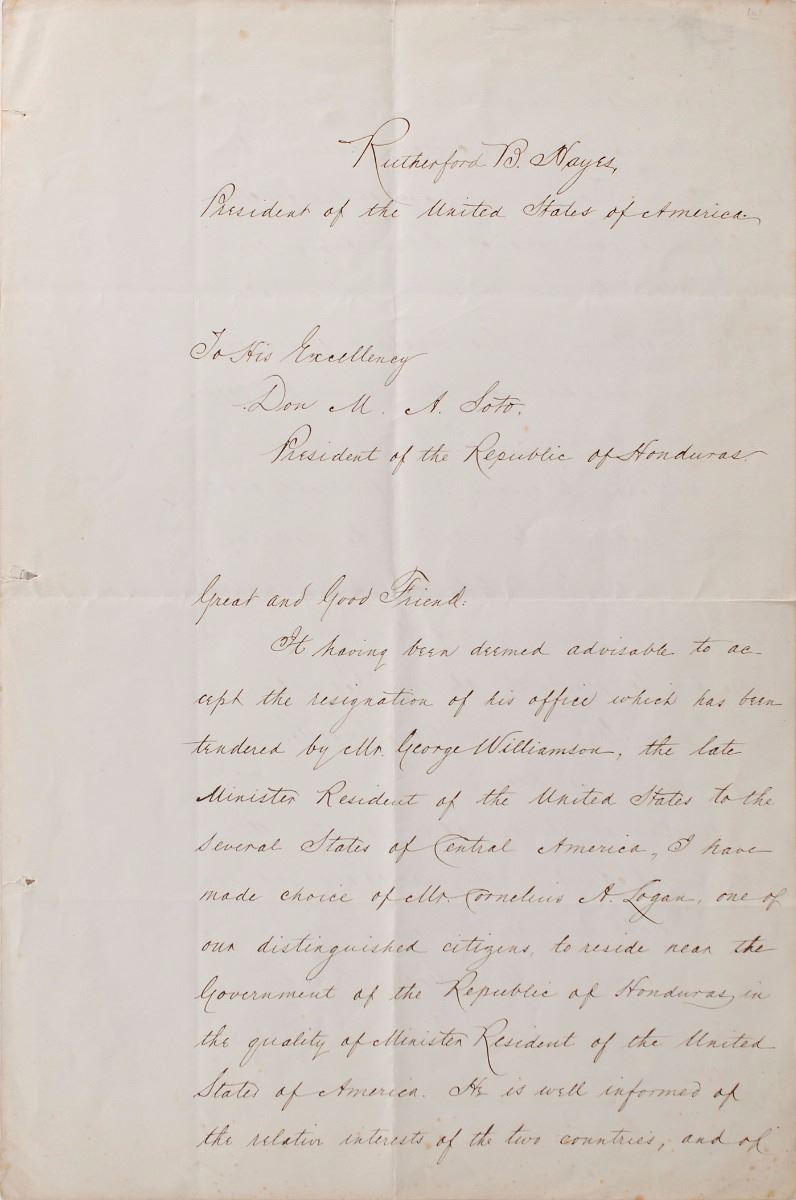 Rutherford B. Hayes,
President of the United States of America.
To His Excellency
Don M. A. Soto.
President of the Republic of Honduras
Great and Good Friend:
It having been deemed advisable to ac-
cept the resignation of his office which has been
tendered by Mr. George Williamson, the late
Minister Resident of the United States to the
several States of Central America, I have
made choice of Mr. Cornelius A. Logan, one of
our distinguished citizens, to reside near the
Government of the Republic of Honduras, in
the quality of Minister Resident of the United
States of America. He is well informed of
the relative interests of the two countries, and of